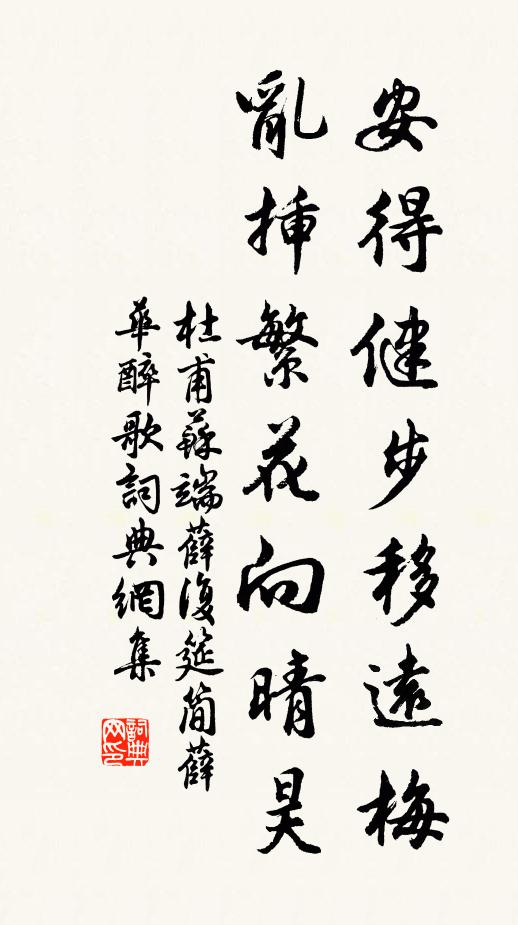 安得健步移遠梅
亂挿繁花向晴昊
杜甫蘇端薛復筵簡薛
華醉歌詞典網集
詞典
网印